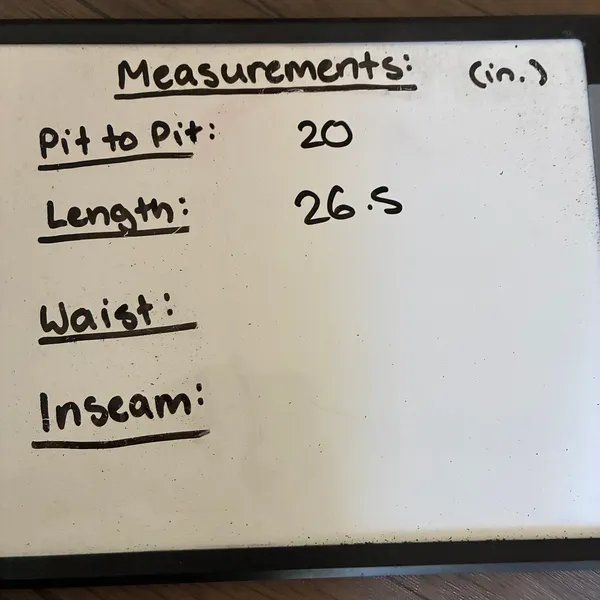 Measurements: (in.)
Pit to Pit: 20
Length: 26.5
Waist:
Inseam: